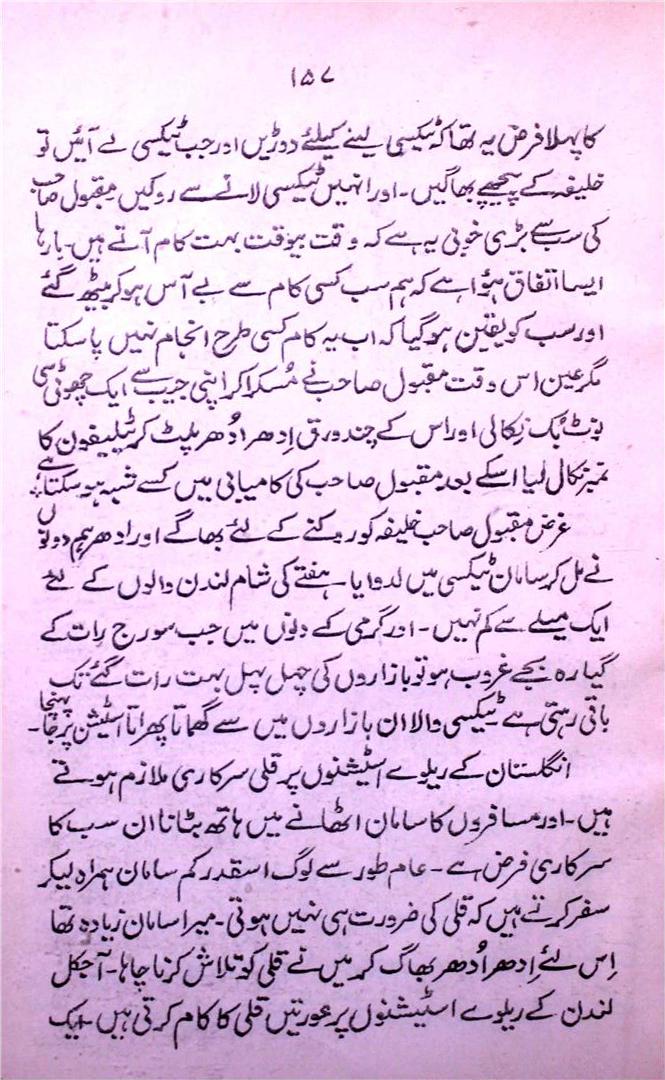 ۱۵۷
کا پہلا فرض یہ تھا کہ ٹیکسی لینے کیلئے دوڑیں اور جب ٹیکسی لے آئیں تو
خلیفہ کے پیچھے بھاگیں۔ اور انہیں ٹیکسی لانے سے روکیں مقبول صاحب
کی سب سے بڑی خوبی یہ ہے کہ وقت بیوقت بہت کام آتے ہیں۔ بارہا
ایسا اتفاق ہؤا ہے کہ ہم سب کسی کام سے بے آس ہو کر بیٹھ گئے
اور سب کو یقین ہوگیا کہ اب یہ کام کسی طرح انجام نہیں پا سکتا
مگر عین اس وقت مقبول صاحب نے مُسکرا کر اپنی جیب سے ایک چھوٹی سی
نوٹ بُک نکالی اور اس کے چند ورق اِدھر اُدھر پلٹ کر ٹیلیفون کا
نمبر نکال لیا اسکے بعد مقبول صاحب کی کامیابی میں کسے شبہ ہو سکتا ہے
غرض مقبول صاحب خلیفہ کو روکنے کے لئے بھاگے اور ادھر ہم دونوں
نے مل کر سامان ٹیکسی میں لدوایا۔ ہفتے کی شام لندن والوں کے لئے
ایک میلے سے کم نہیں۔ اور گرمی کے دنوں میں جب سورج رات کے
گیارہ بجے غروب ہو تو بازاروں کی چہل پہل بہت رات گئے تک
باقی رہتی ہے ٹیکسی والا ان بازاروں میں سے گھماتا پھراتا اسٹیشن پر جا پہنچا۔
انگلستان کے ریلوے اسٹیشنوں پر قلی سرکاری ملازم ہوتے
ہیں۔ اور مسافروں کا سامان اٹھانے میں ہاتھ بٹانا ان سب کا
سرکاری فرض ہے۔ عام طور سے لوگ اسقدر کم سامان ہمراہ لیکر
سفر کرتے ہیں کہ قلی کی ضرورت ہی نہیں ہوتی۔ میرا سامان زیادہ تھا
اِس لئے اِدھر اُدھر بھاگ کر میں نے قلی کو تلاش کرنا چاہا۔ آجکل
لندن کے ریلوے اسٹیشنوں پر عورتیں قلی کا کام کرتی ہیں۔ ایک